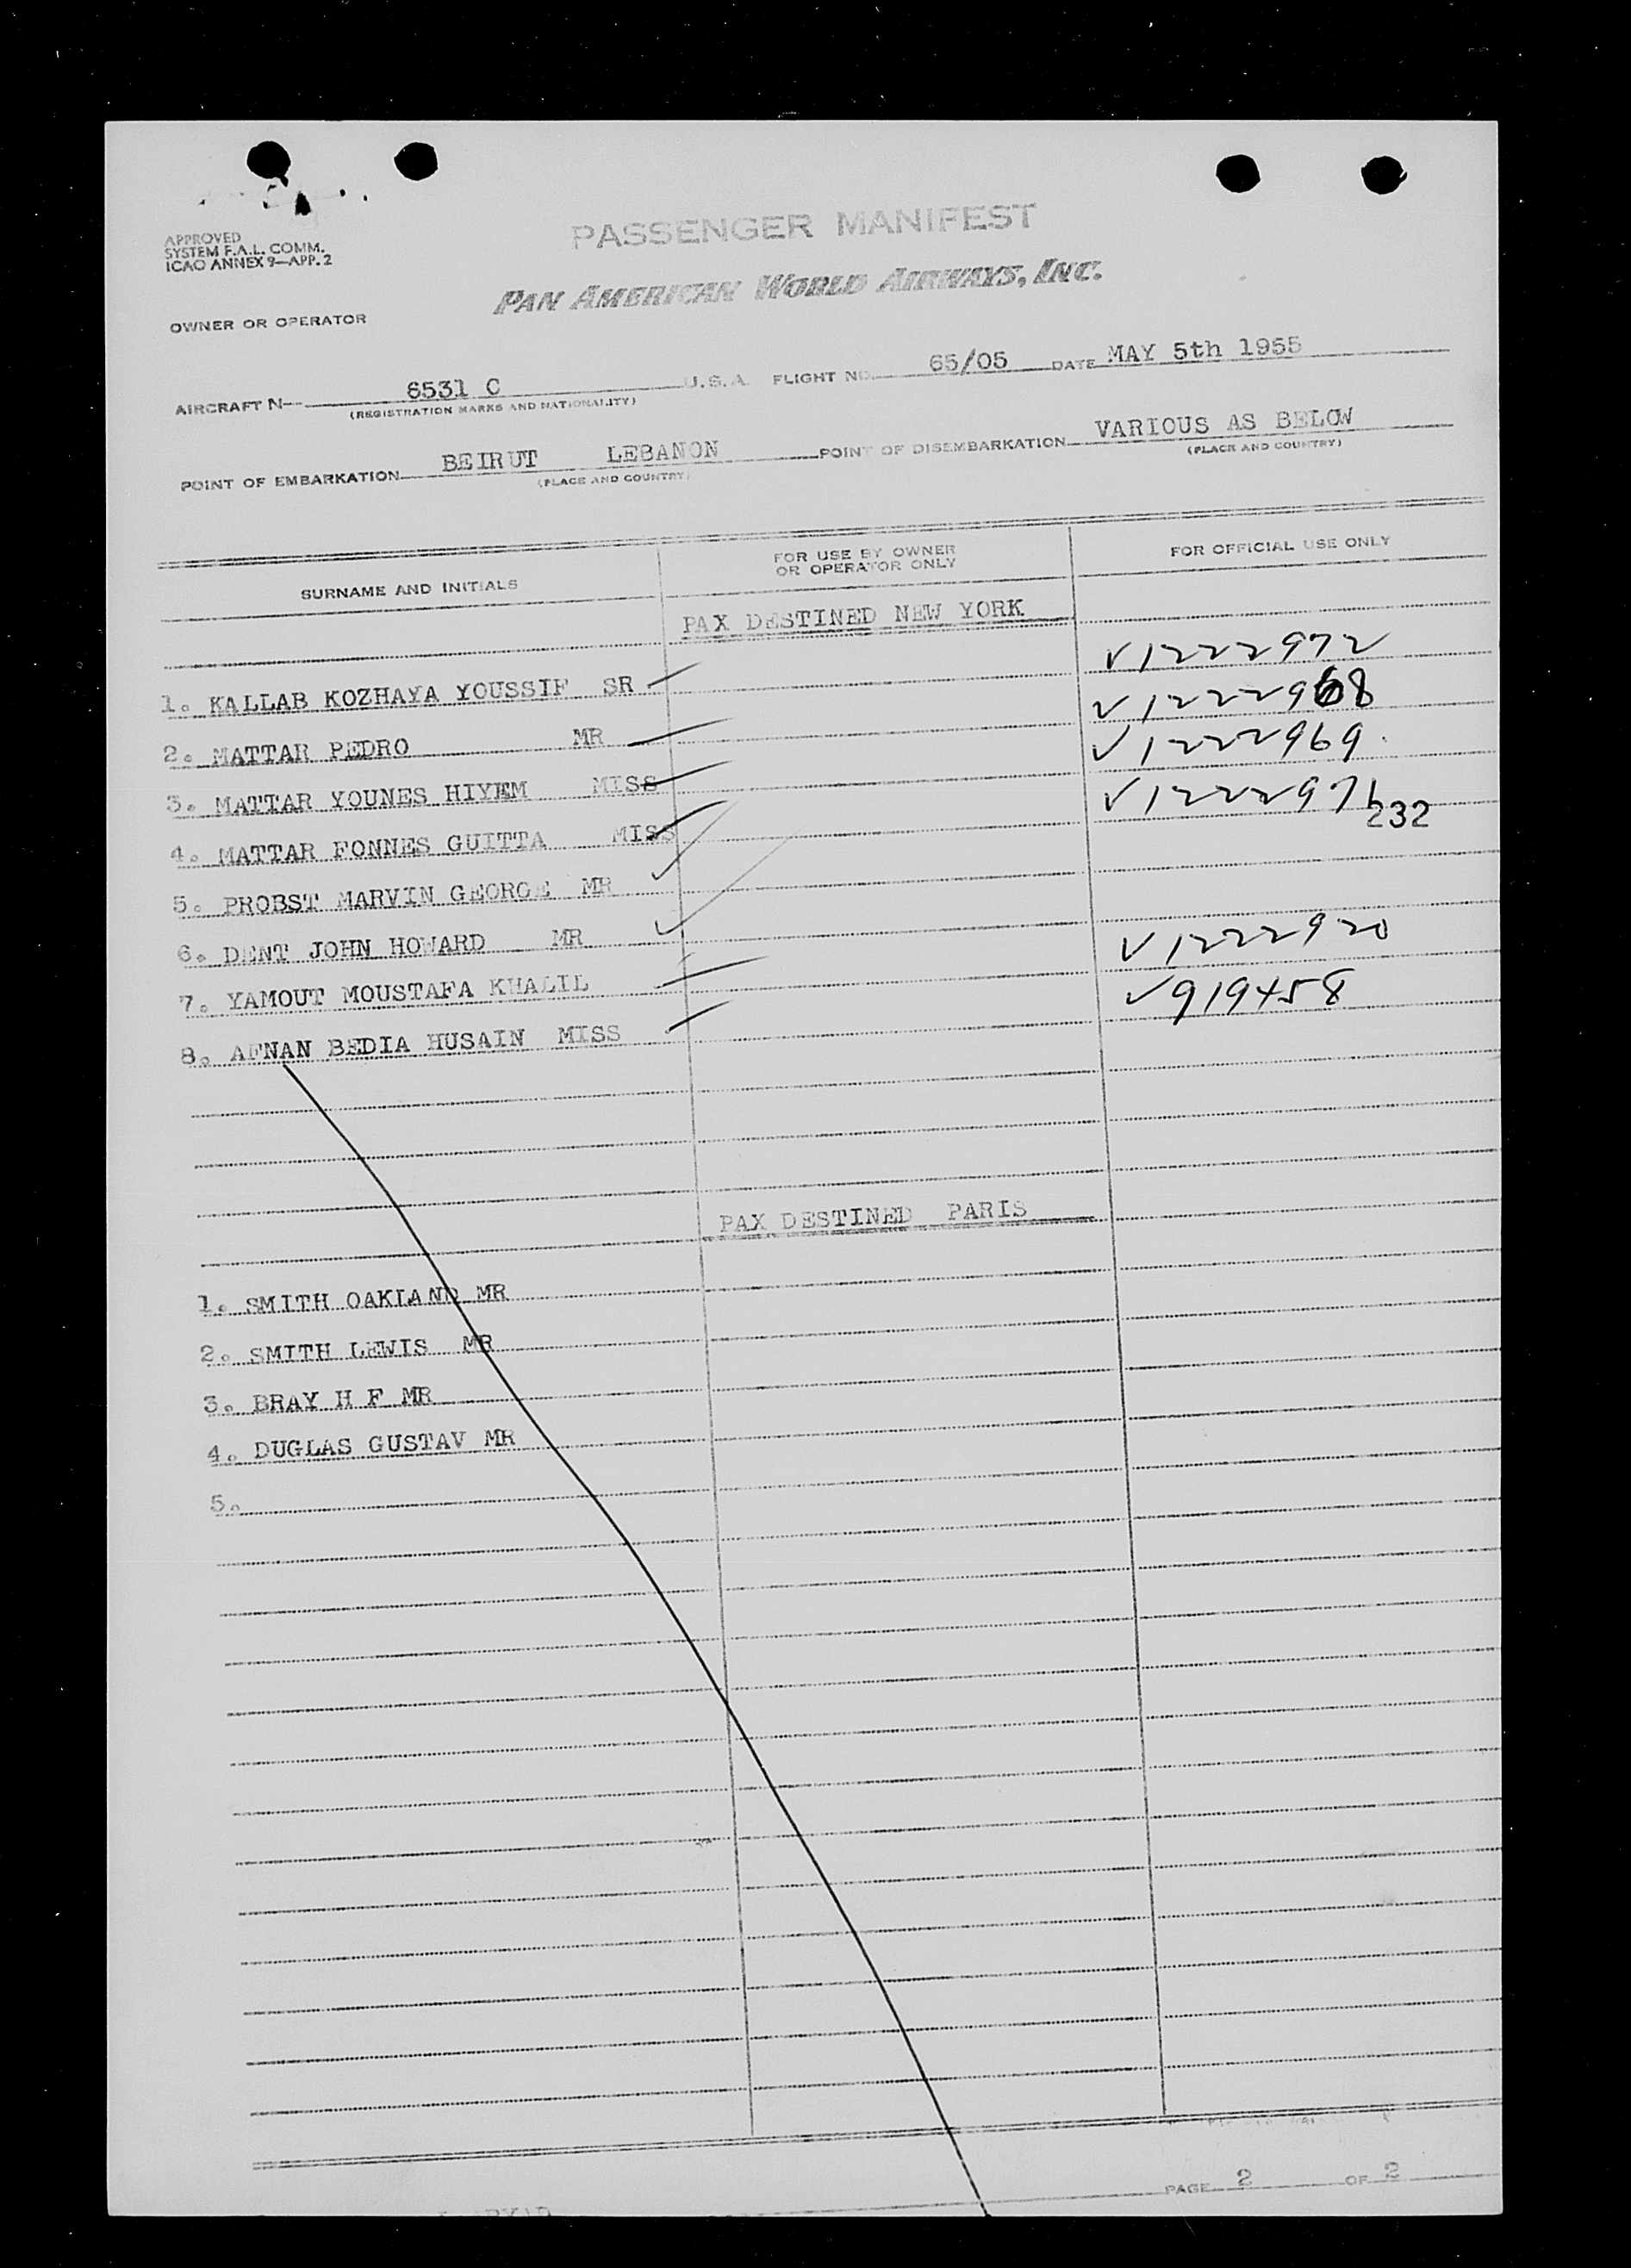 APPROVED
SYSTEM F.A.L. COMM.
ICAO ANNEX 9—APP. 2
PASSENGER MANIFEST
PAN AMERICAN WORLD AIRWAYS, INC.
OWNER OR OPERATOR
AIRCRAFT N- 6531 C U.S.A. FLIGHT NO. 65/05 DATE MAY 5th 1955
(REGISTRATION MARKS AND NATIONALITY)
POINT OF EMBARKATION BEIRUT LEBANON POINT OF DISEMBARKATION VARIOUS AS BELOW
(PLACE AND COUNTRY) (PLACE AND COUNTRY)
SURNAME AND INITIALS FOR USE BY OWNER OR OPERATOR ONLY FOR OFFICIAL USE ONLY
PAX DESTINED NEW YORK
1. KALLAB KOZHAYA YOUSSIF SR V1222972
2. MATTAR PEDRO MR V1222968
3. MATTAR YOUNES HIYEM MISS V1222969
4. MATTAR FONNES GUITTA MISS V1222971
232
5. PROBST MARVIN GEORGE MR
6. DENT JOHN HOWARD MR
7. YAMOUT MOUSTAFA KHALIL V1222920
8. AFNAN BEDIA HUSAIN MISS V919458
PAX DESTINED PARIS
1. SMITH OAKLAND MR
2. SMITH LEWIS MR
3. BRAY H F MR
4. DUGLAS GUSTAV MR
5.
PAGE 2 OF 2